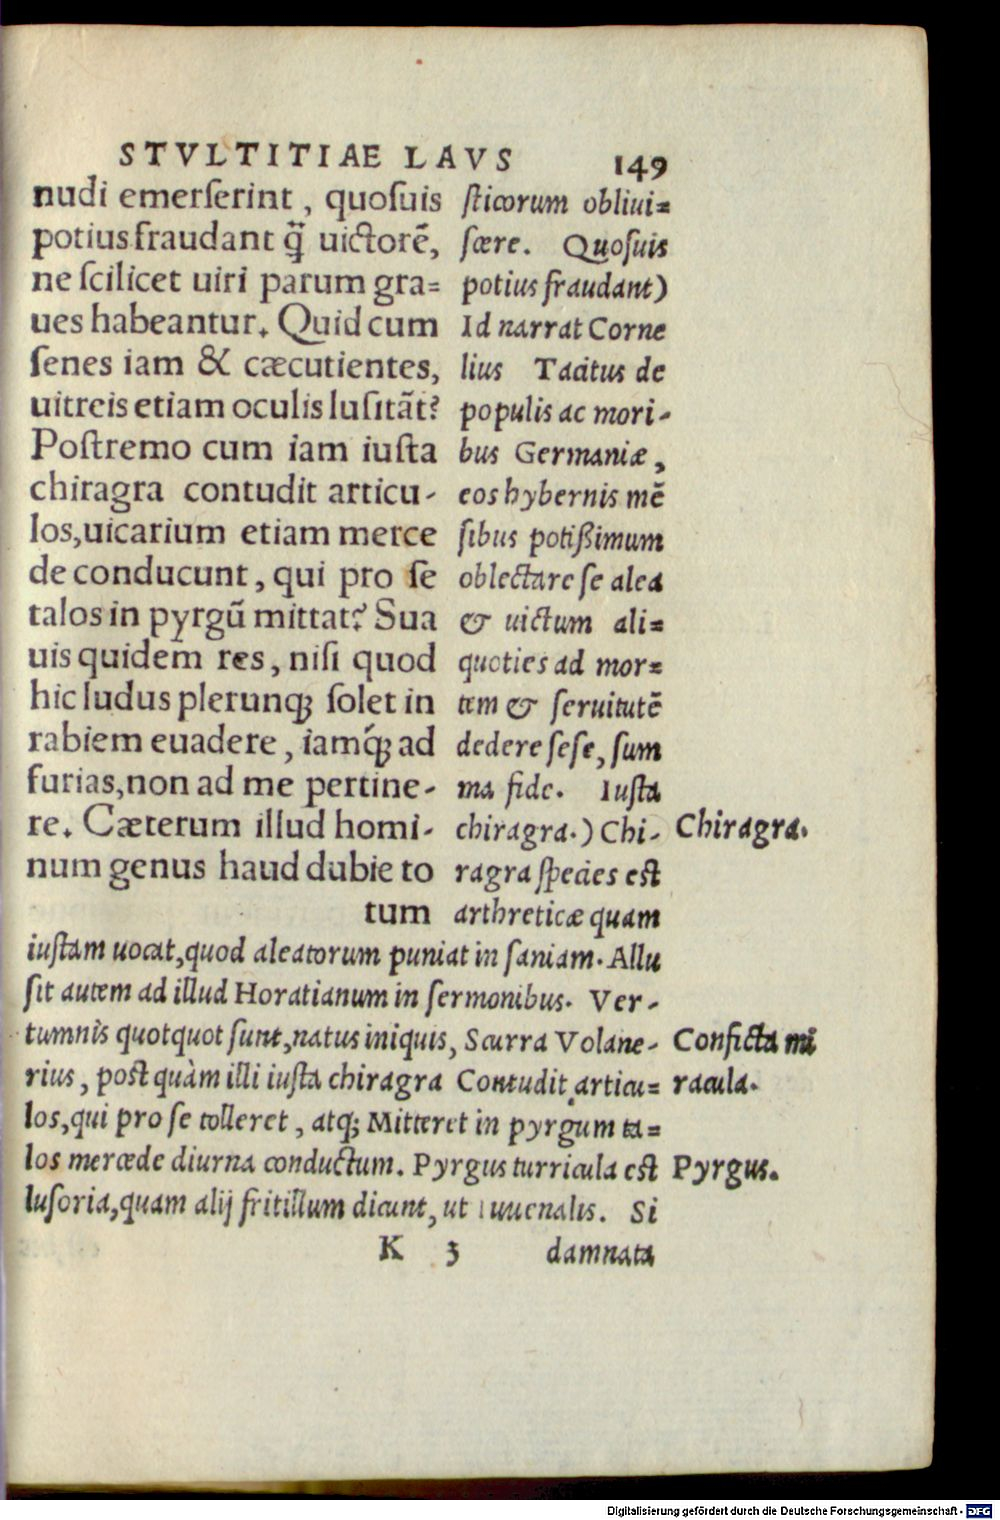 STVLTITIAE LAVS 149
nudi emerserint, quosuis
potius fraudant q̃ uictorẽ,
ne scilicet uiri parum gra=
ues habeantur. Quid cum
senes iam & cæcutientes,
uitreis etiam oculis lusitãt?
Postremo cum iam iusta
chiragra contudit articu-
los, uicarium etiam merce
de conducunt, qui pro se
talos in pyrgũ mittat? Sua
uis quidem res, nisi quod
hic ludus plerunq; solet in
rabiem euadere, iamq́; ad
furias, non ad me pertine-
re. Cæterum illud homi-
num genus haud dubie to
tum
sticorum obliui=
scere. Quosuis
potius fraudant)
Id narrat Corne
lius Tacitus de
populis ac mori-
bus Germaniæ,
eos hybernis mẽ
sibus potißimum
oblectare se alea
& uictum ali=
quoties ad mor=
tem & seruitutẽ
dedere sese, sum
ma fide. Iusta
chiragra.) Chi-
ragra species est
arthreticæ quam
iustam uocat, quod aleatorum puniat in saniam. Allu
sit autem ad illud Horatianum in sermonibus. Ver-
tumnis quotquot sunt, natus iniquis, Scurra Volane-
rius, post quàm illi iusta chiragra Contudit articu=
los, qui pro se tolleret, atq; Mitteret in pyrgum ta=
los mercede diurna conductum. Pyrgus turricula est
lusoria, quam alij fritillum dicunt, ut Iuuenalis. Si
K 3 damnata
Chiragra.
Conficta mi
racula.
Pyrgus.
Digitalisierung gefördert durch die Deutsche Forschungsgemeinschaft - DFG